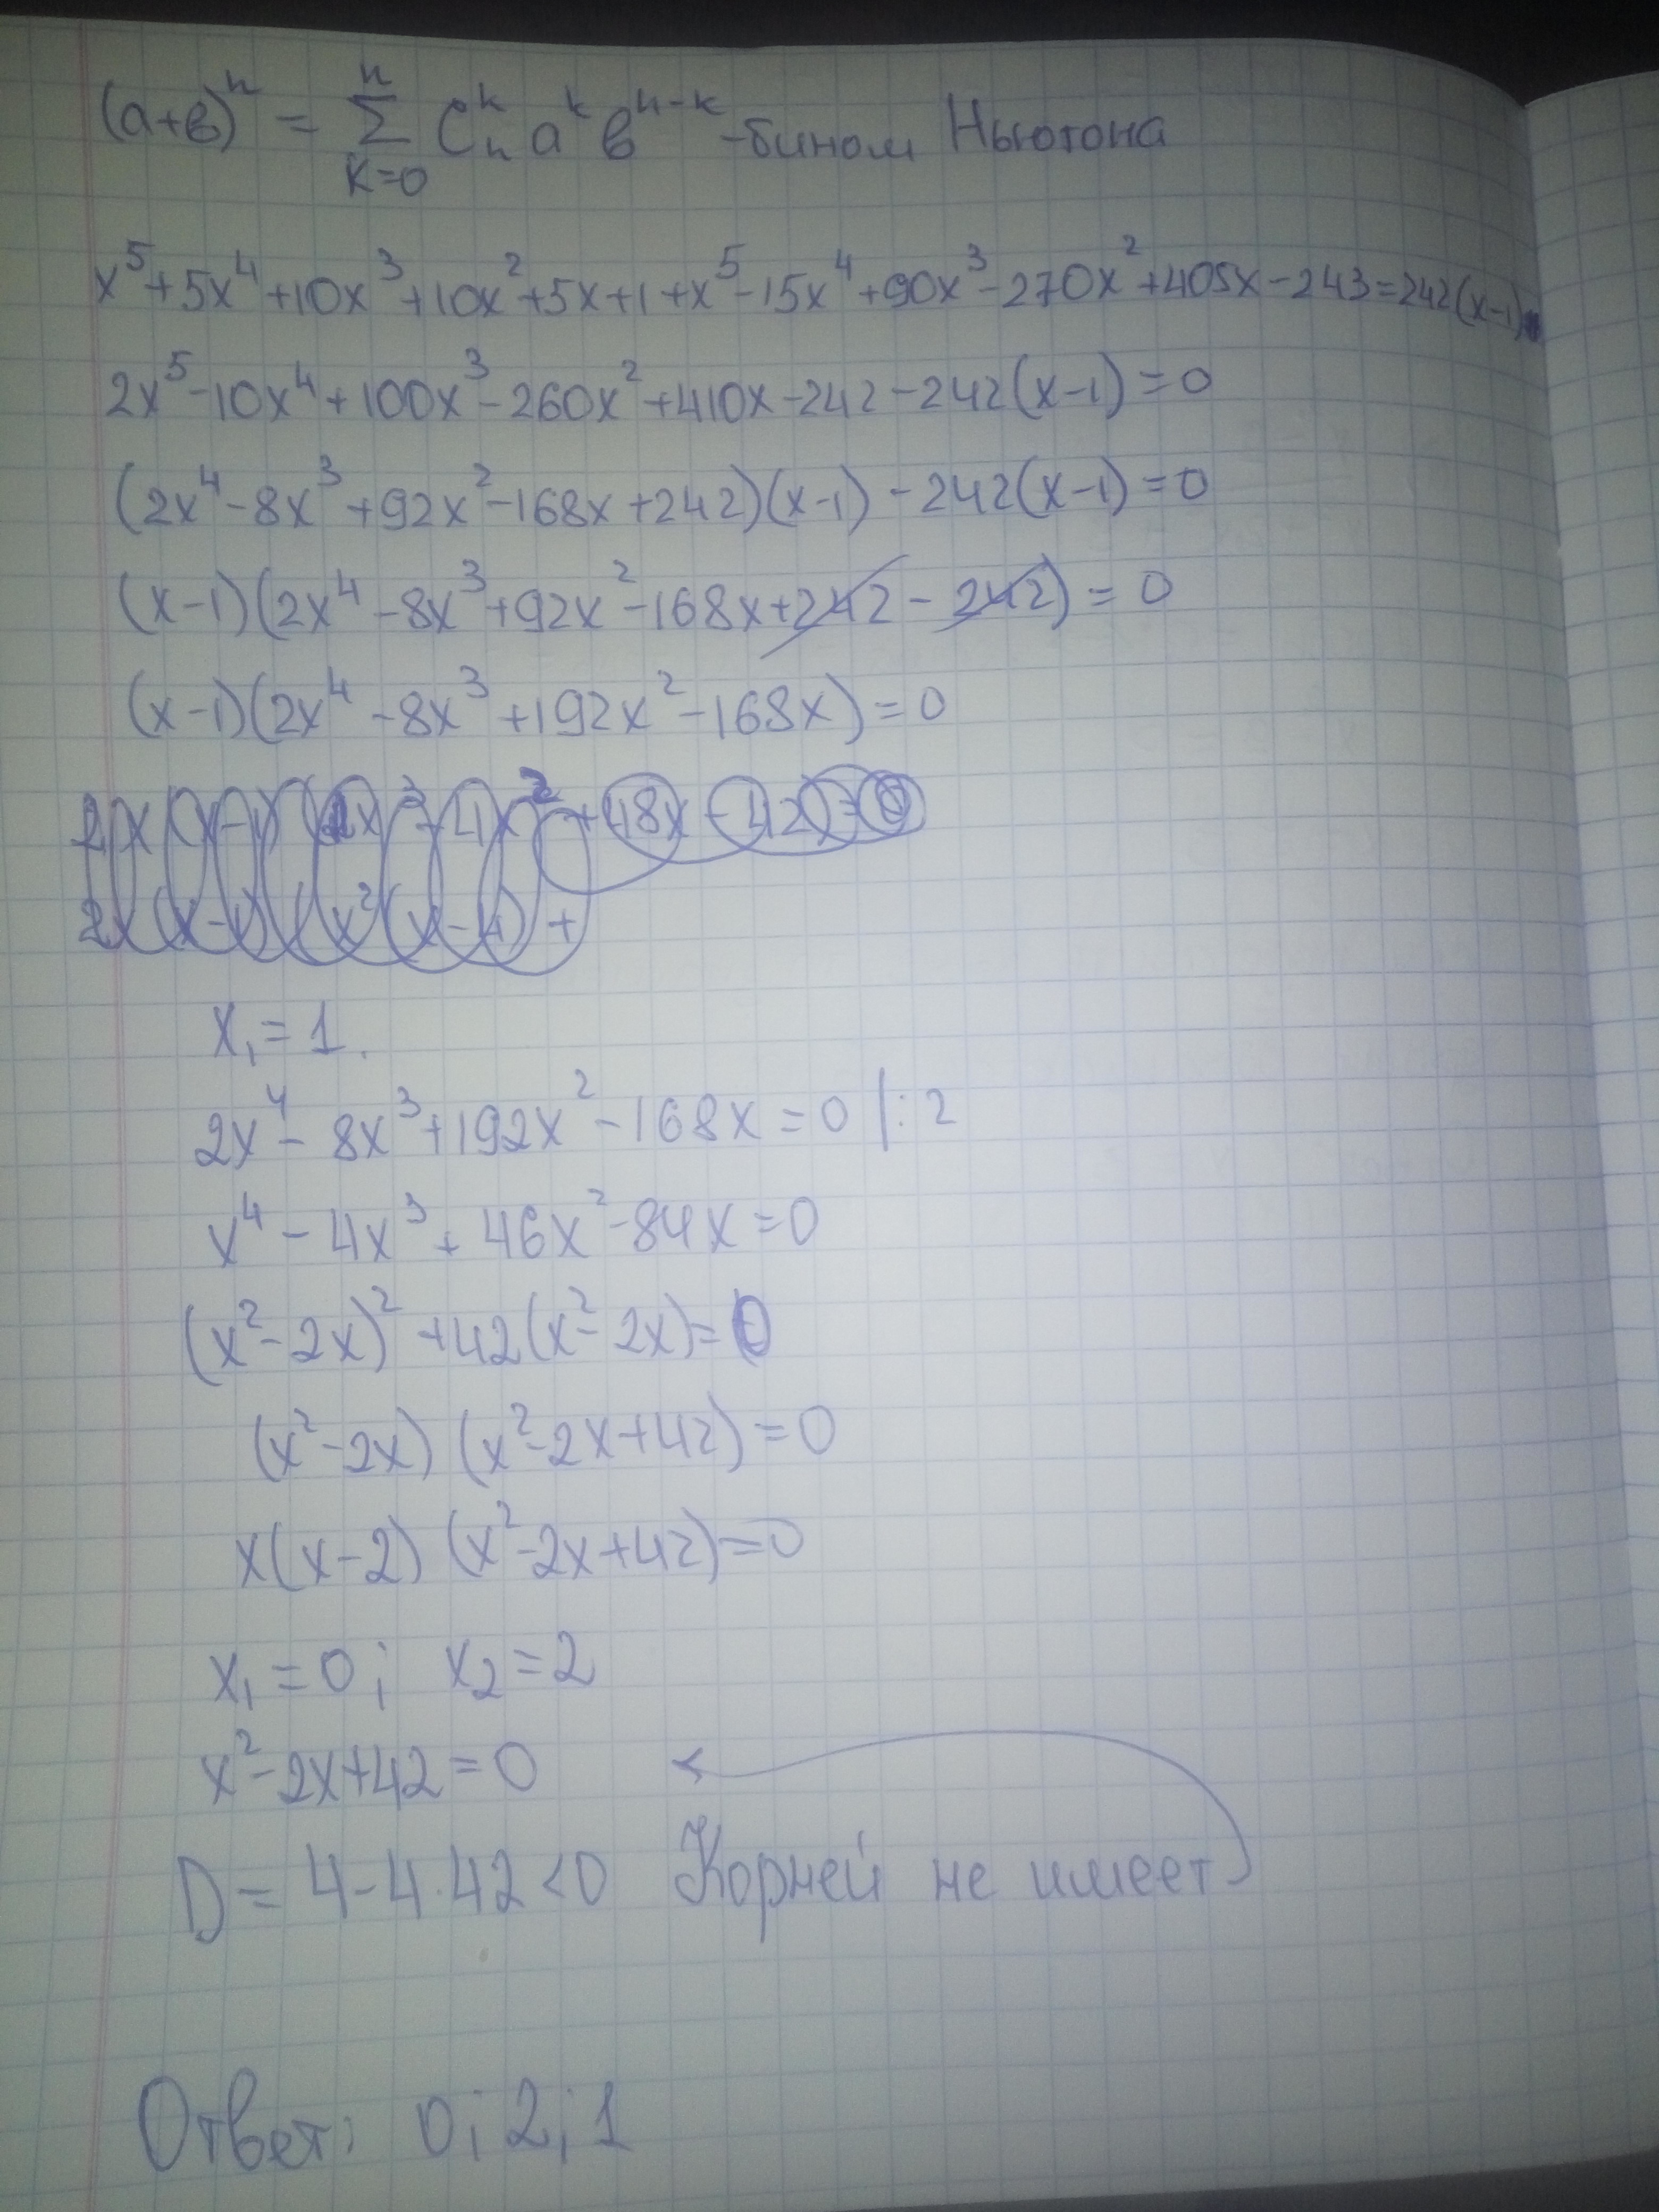 (a+в)ⁿ = Σ_{K=0}^{n} C_n^k a^k в^{n-k} - бином Ньютона
x⁵+5x⁴+10x³+10x²+5x+1+x⁵-15x⁴+90x³-270x²+405x-243=242(x-1)
2x⁵-10x⁴+100x³-260x²+410x-242-242(x-1)=0
(2x⁴-8x³+92x²-168x+242)(x-1)-242(x-1)=0
(x-1)(2x⁴-8x³+92x²-168x+242-242)=0
(x-1)(2x⁴-8x³+192x²-168x)=0
x₁=1.
2x⁴-8x³+192x²-168x=0 |:2
x⁴-4x³+46x²-84x=0
(x²-2x)²+42(x²-2x)=0
(x²-2x)(x²-2x+42)=0
x(x-2)(x²-2x+42)=0
x₁=0; x₂=2
x²-2x+42=0
D=4-4·42<0 Корней не имеет
Ответ: 0; 2; 1